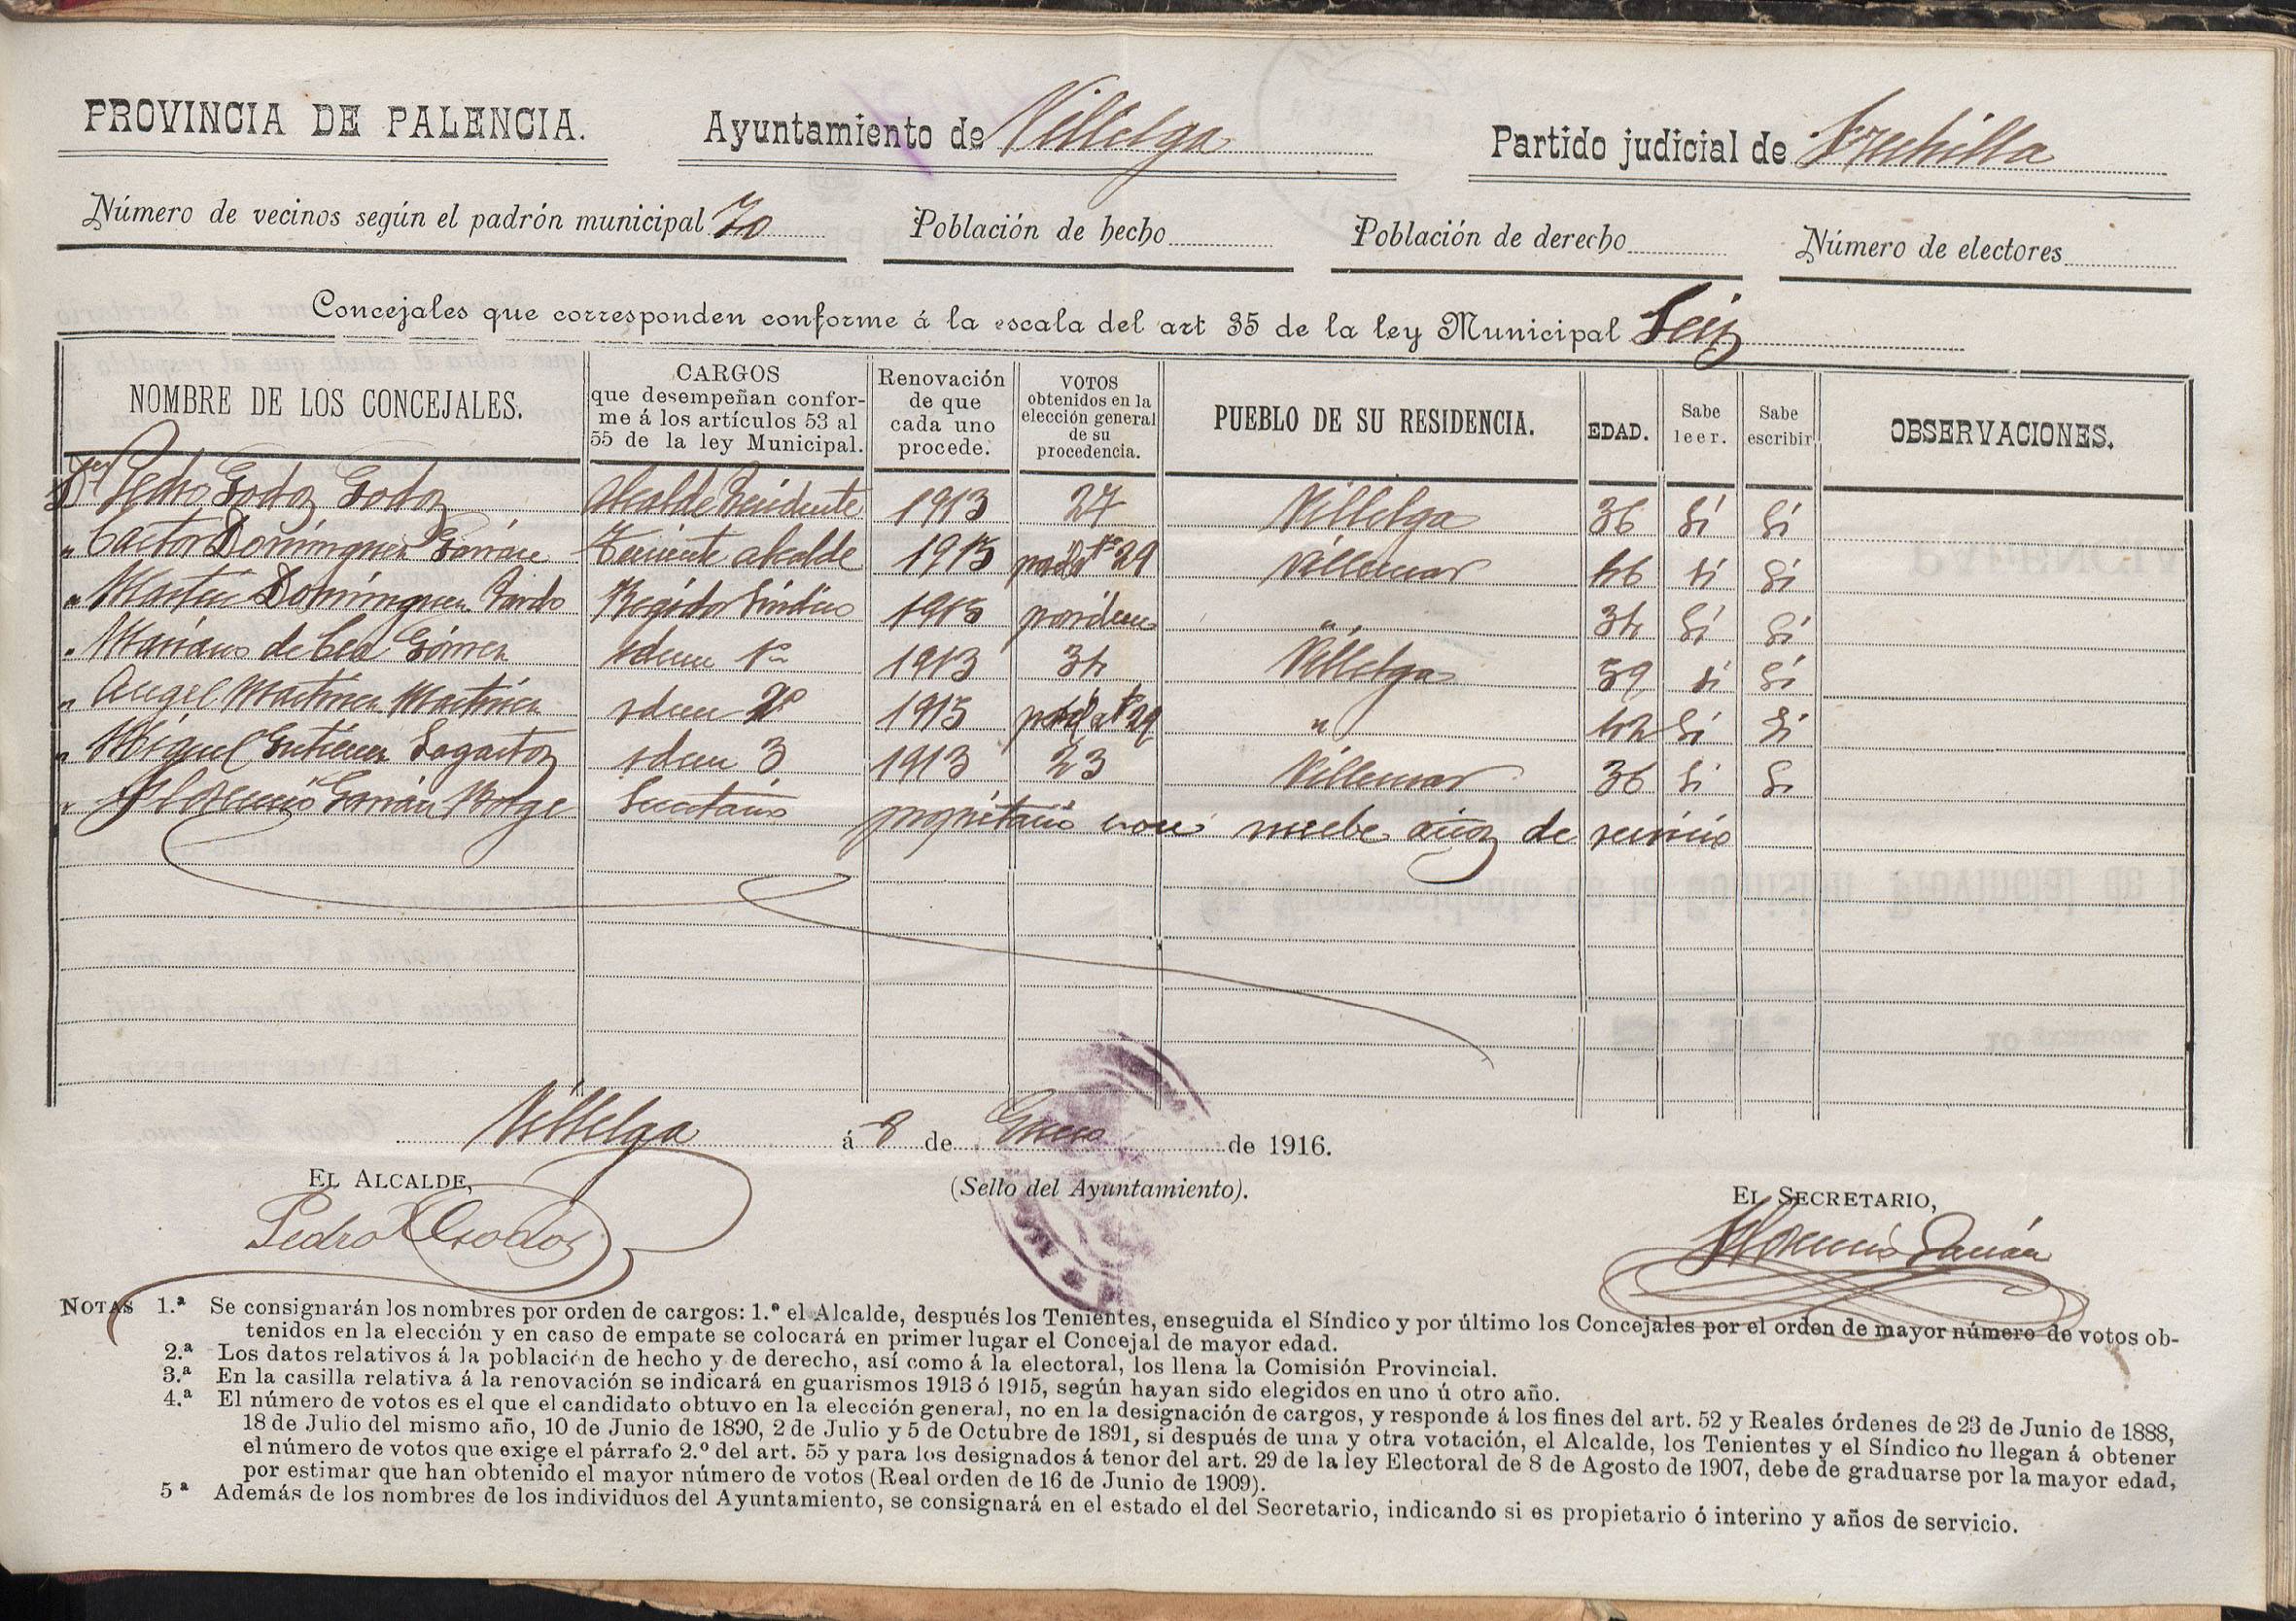 PROVINCIA DE PALENCIA. Ayuntamiento de Villelga Partido judicial de Frechilla
Número de vecinos según el padrón municipal 70 Población de hecho Población de derecho Número de electores
Concejales que corresponden conforme á la escala del art 35 de la ley Municipal Seis
NOMBRE DE LOS CONCEJALES. CARGOS que desempeñan confor- Renovación de que cada uno procede. VOTOS obtenidos en la elección general de su procedencia. PUEBLO DE SU RESIDENCIA. EDAD. Sabe leer. Sabe escribir OBSERVACIONES.
me á los artículos 53 al
55 de la ley Municipal.
Pedro Godos Godos Alcalde Presidente 1913 27 Villelga 36 Si Si
" Castor Dominguez Garrán Teniente alcalde 1915 29 Villemar 46 Si Si
" Martin Dominguez Pardo Regidor Sindico 1915 por idem " 34 Si Si
" Mariano de Cea Gómez idem 1º 1913 34 Villelga 39 Si Si
" Angel Martinez Martinez idem 2º 1915 29 " 42 Si Si
" Miguel Gutierrez Lagartos idem 3 1913 23 Villemar 36 Si Si
" Florencio Garrán Borge Secretario propietario nueve años de servicio
Villelga á 8 de Enero de 1916.
EL ALCALDE, (Sello del Ayuntamiento). EL SECRETARIO,
Pedro Godos Florencio Garrán
NOTAS 1.ª Se consignarán los nombres por orden de cargos: 1.º el Alcalde, después los Tenientes, enseguida el Síndico y por último los Concejales por el orden de mayor número de votos ob-
tenidos en la elección y en caso de empate se colocará en primer lugar el Concejal de mayor edad.
2.ª Los datos relativos á la población de hecho y de derecho, así como á la electoral, los llena la Comisión Provincial.
3.ª En la casilla relativa á la renovación se indicará en guarismos 1913 ó 1915, según hayan sido elegidos en uno ú otro año.
4.ª El número de votos es el que el candidato obtuvo en la elección general, no en la designación de cargos, y responde á los fines del art. 52 y Reales órdenes de 23 de Junio de 1888,
18 de Julio del mismo año, 10 de Junio de 1890, 2 de Julio y 5 de Octubre de 1891, si después de una y otra votación, el Alcalde, los Tenientes y el Síndico no llegan á obtener
el número de votos que exige el párrafo 2.º del art. 55 y para los designados á tenor del art. 29 de la ley Electoral de 8 de Agosto de 1907, debe de graduarse por la mayor edad,
por estimar que han obtenido el mayor número de votos (Real orden de 16 de Junio de 1909).
5ª Además de los nombres de los individuos del Ayuntamiento, se consignará en el estado el del Secretario, indicando si es propietario ó interino y años de servicio.